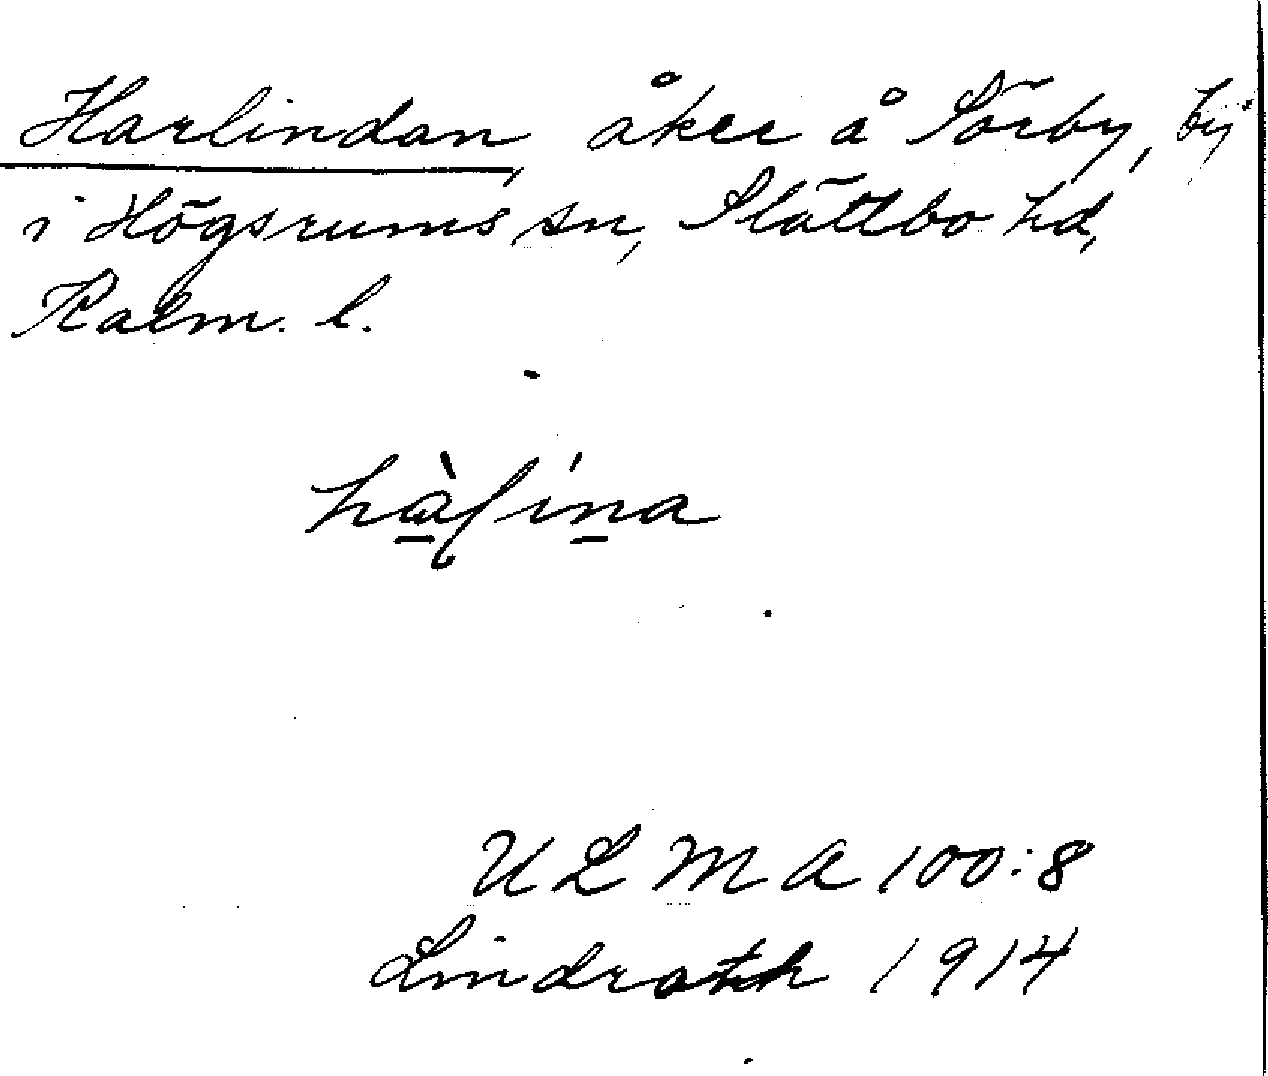 Harlindan, åker å Sörby, by
i Högsrums sn, Slättbo hd,
Kalm. l.
ULMA 100:8
Lindroth 1914